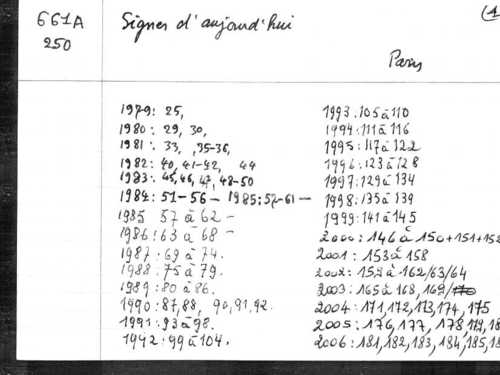 661A
250
Signes d'aujourd'hui
(1
Paris
1979: 25,
1980: 29, 30,
1981: 33, ,35-36,
1982: 40, 41-42, 44
1983: 45, 46, 47, 48-50
1984: 51-56 - 1985: 57-61-
1985 57 à 62 -
1986: 63 à 68 -
1987: 69 à 74.
1988: 75 à 79.
1989: 80 à 86.
1990: 87, 88, 90, 91, 92.
1991: 93 à 98.
1992: 99 à 104.
1993: 105 à 110
1994: 111 à 116
1995: 117 à 122
1996: 123 à 128
1997: 129 à 134
1998: 135 à 139
1999: 141 à 145
2000: 146 à 150+151+152
2001: 153 à 158
2002: 158 à 162/63/64
2003: 165 à 168, 169/170
2004: 171, 172, 173, 174, 175
2005: 176, 177, 178, 179, 18
2006: 181, 182, 183, 184, 185, 18